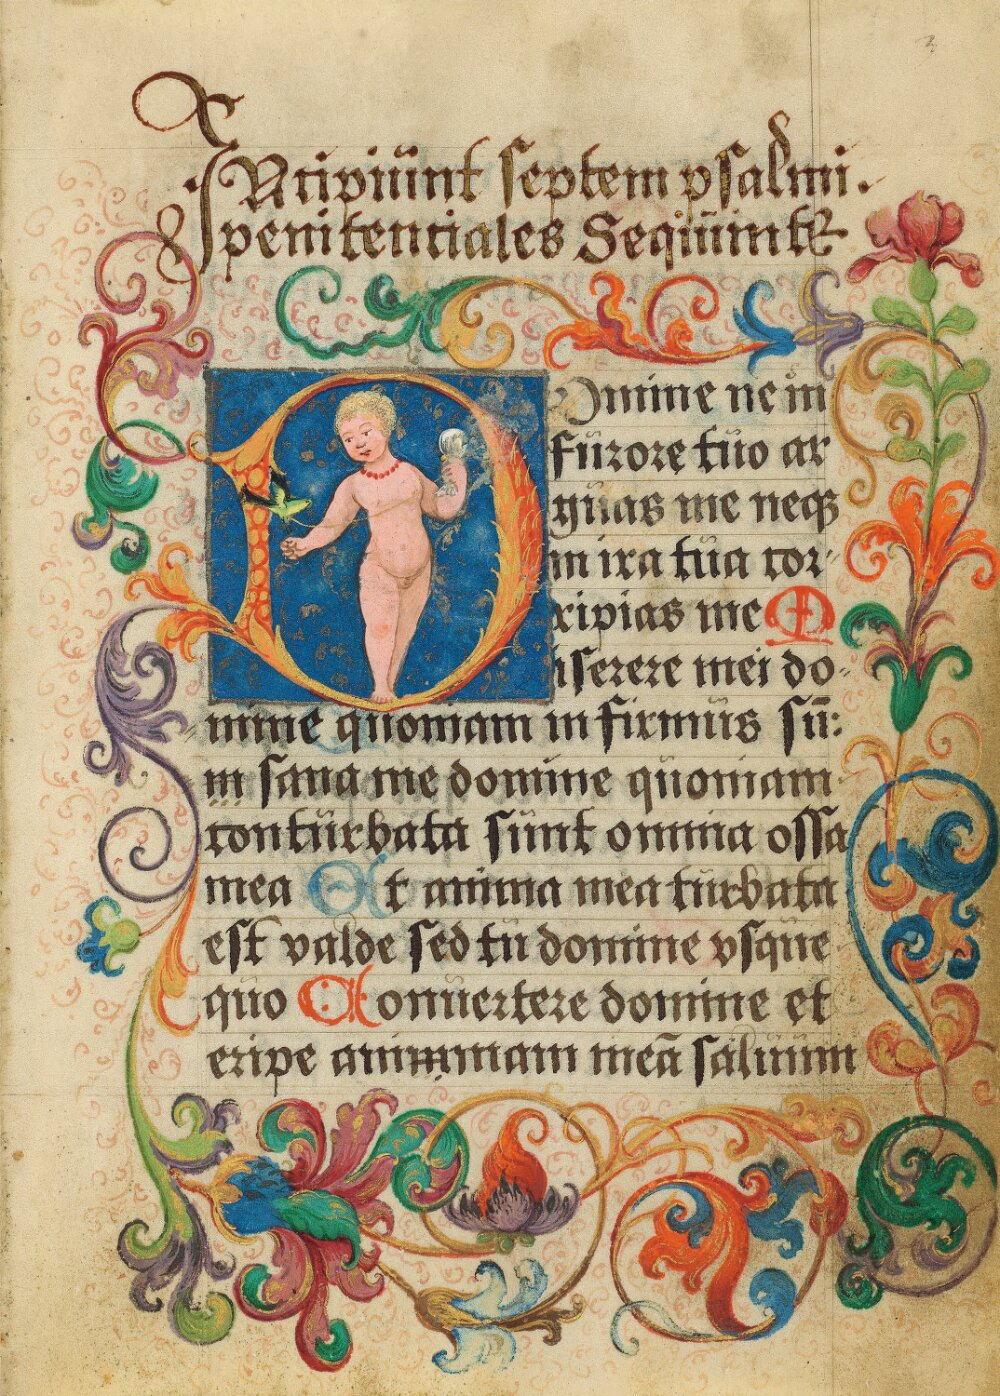 Incipiunt septem psalmi.
penitentiales Sequuntur
Domine ne in
furore tuo ar
guas me neqz
in ira tua cor-
ripias me M
iserere mei do-
mine quoniam infirmus sū:
m sana me domine quoniam
conturbata sunt omnia ossa
mea Et anima mea turbata
est valde sed tu domine vsque
quo Conuertere domine et
eripe animmam meā saluum